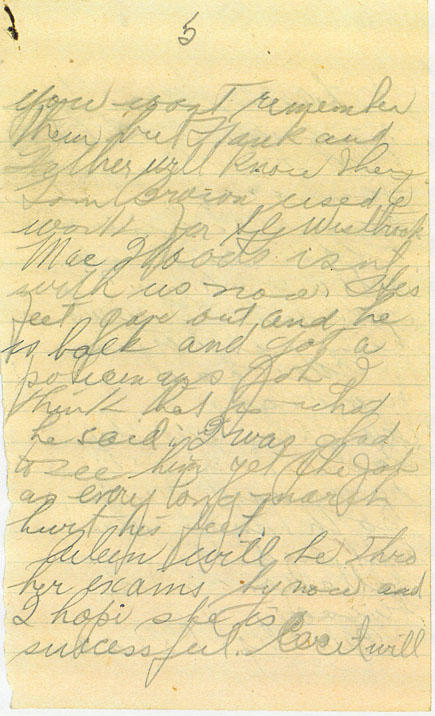 5
you wont remember
them but Hank and
Father will know they
Tom Brown used to
work for S G Westbrook
Mac Woods isn't
with us now. His
feet gave out and he
is back and got a
policemans job I
think that is what
he said. I was glad
to see him get the job
as every long march
hurt his feet.
will be thro
her exams by now and
I hope she is
successful. Cecil will